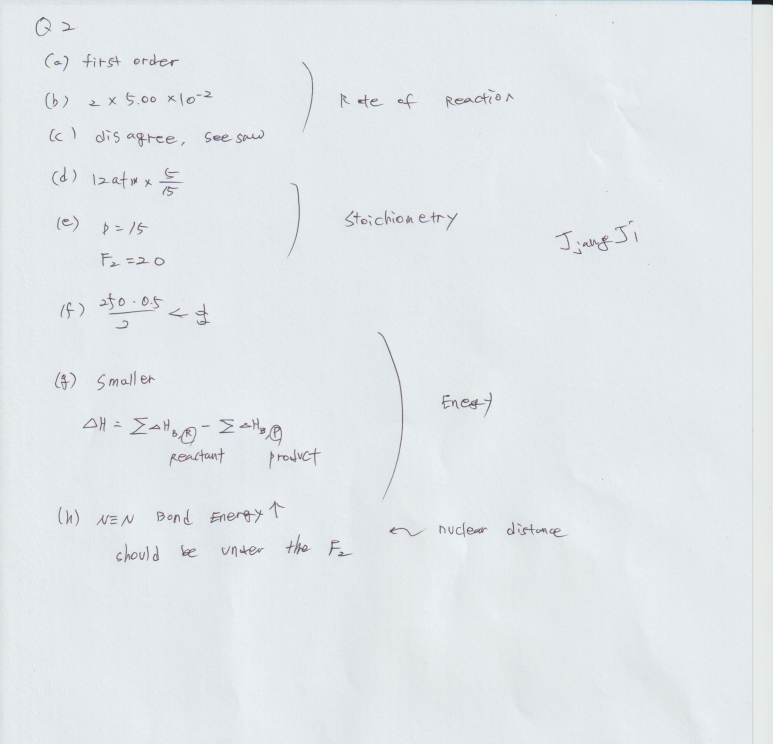 Q2
(a) first order
(b) 2 × 5.00 × 10⁻²
Rate of Reaction
(c) disagree, see saw
(d) 12atm × 5/15
(e) P = 15
F₂ = 20
Stoichiometry
JjangJi
(f) 250 · 0.5 / 2 <
(g) smaller
ΔH = ΣΔH_B,Ⓡ − ΣΔH_B,Ⓟ
Reactant product
Energy
(h) N≡N Bond Energy ↑
should be under the F₂
← nuclear distance